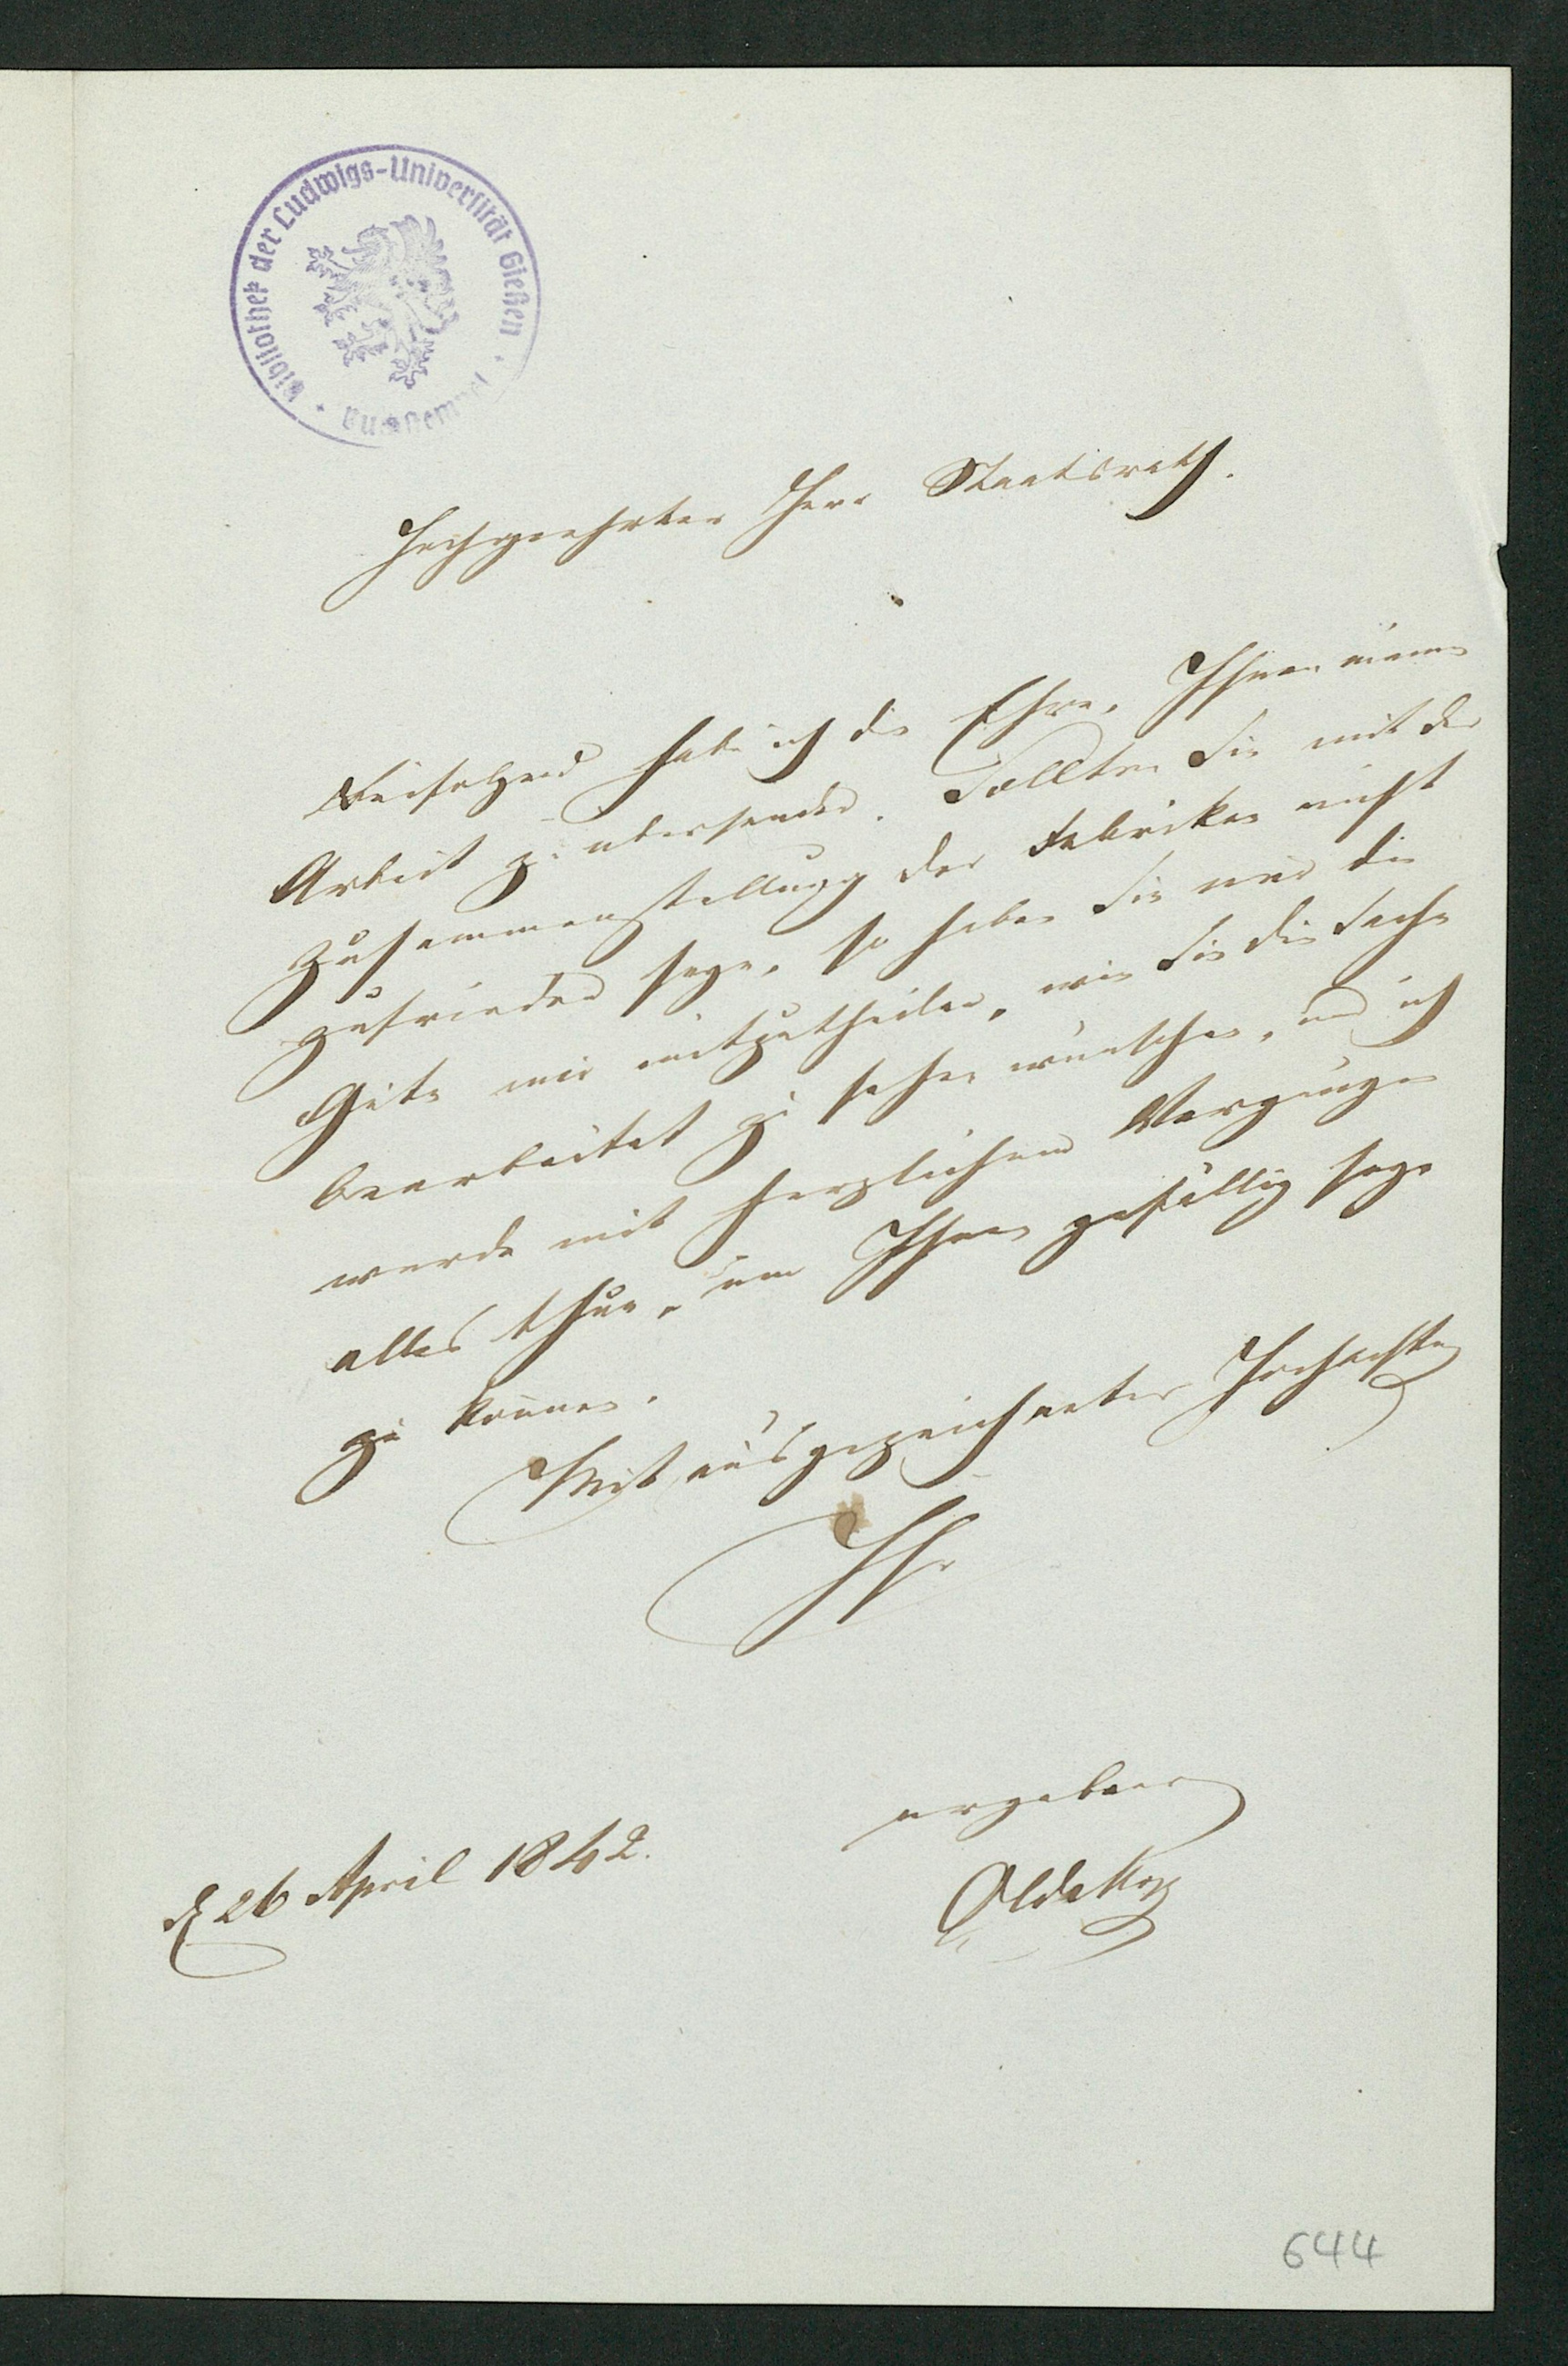 Bibliothek der Ludwigs-Universität Gießen
Hochgeehrter Herr Staatsrath.
Beifolgend habe ich die Ehre, Ihnen meine
Arbeit zu übersenden. Sollten Sie mit der
Zusammenstellung der Fabriken nicht
zufrieden seyn, so haben Sie nur die
Güte mir mitzutheilen, wie Sie die Sache
bearbeitet zu sehen wünschen, und ich
werde mit herzlichem Vergnügen
alles thun, um Ihnen gefällig seyn
zu können.
Mit ausgezeichneter Hochachtung
Ihr
ergebener
Oldekop
d 26 April 1842.
644